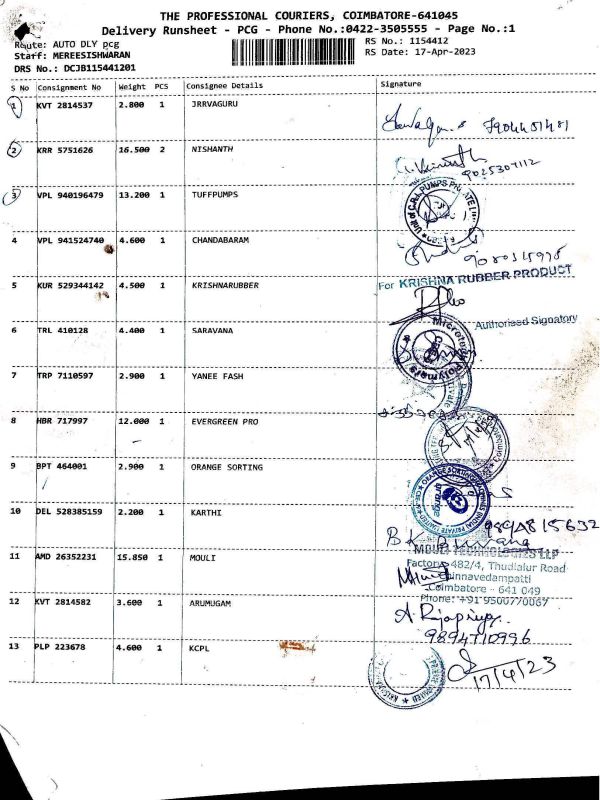 THE PROFESSIONAL COURIERS, COIMBATORE-641045
Delivery Runsheet - PCG - Phone No.:0422-3505555 - Page No.:1
Route: AUTO DLY pcg
RS No.: 1154412
Staff: MEREESISHWARAN
RS Date: 17-Apr-2023
DRS No.: DCJB115441201
S No Consignment No Weight PCS Consignee Details Signature
1 KVT 2814537 2.800 1 JRRVAGURU
2 KRR 5751626 16.500 2 NISHANTH
9025307112
3 VPL 940196479 13.200 1 TUFFPUMPS
4 VPL 941524740 4.600 1 CHANDABARAM
5 KUR 529344142 4.500 1 KRISHNARUBBER
For KRISHNA RUBBER PRODUCT
Authorised Signatory
6 TRL 410128 4.400 1 SARAVANA
7 TRP 7110597 2.900 1 YANEE FASH
8 HBR 717997 12.000 1 EVERGREEN PRO
9 BPT 464001 2.900 1 ORANGE SORTING
10 DEL 528385159 2.200 1 KARTHI
11 AMD 26352231 15.850 1 MOULI
MOULI TECHNOLOGIES LLP
Factory 482/4, Thudialur Road
Chinnavedampatti
Coimbatore - 641 049
Phone: +91 9500770067
12 KVT 2814582 3.600 1 ARUMUGAM
9894710996
13 PLP 223678 4.600 1 KCPL
17/4/23